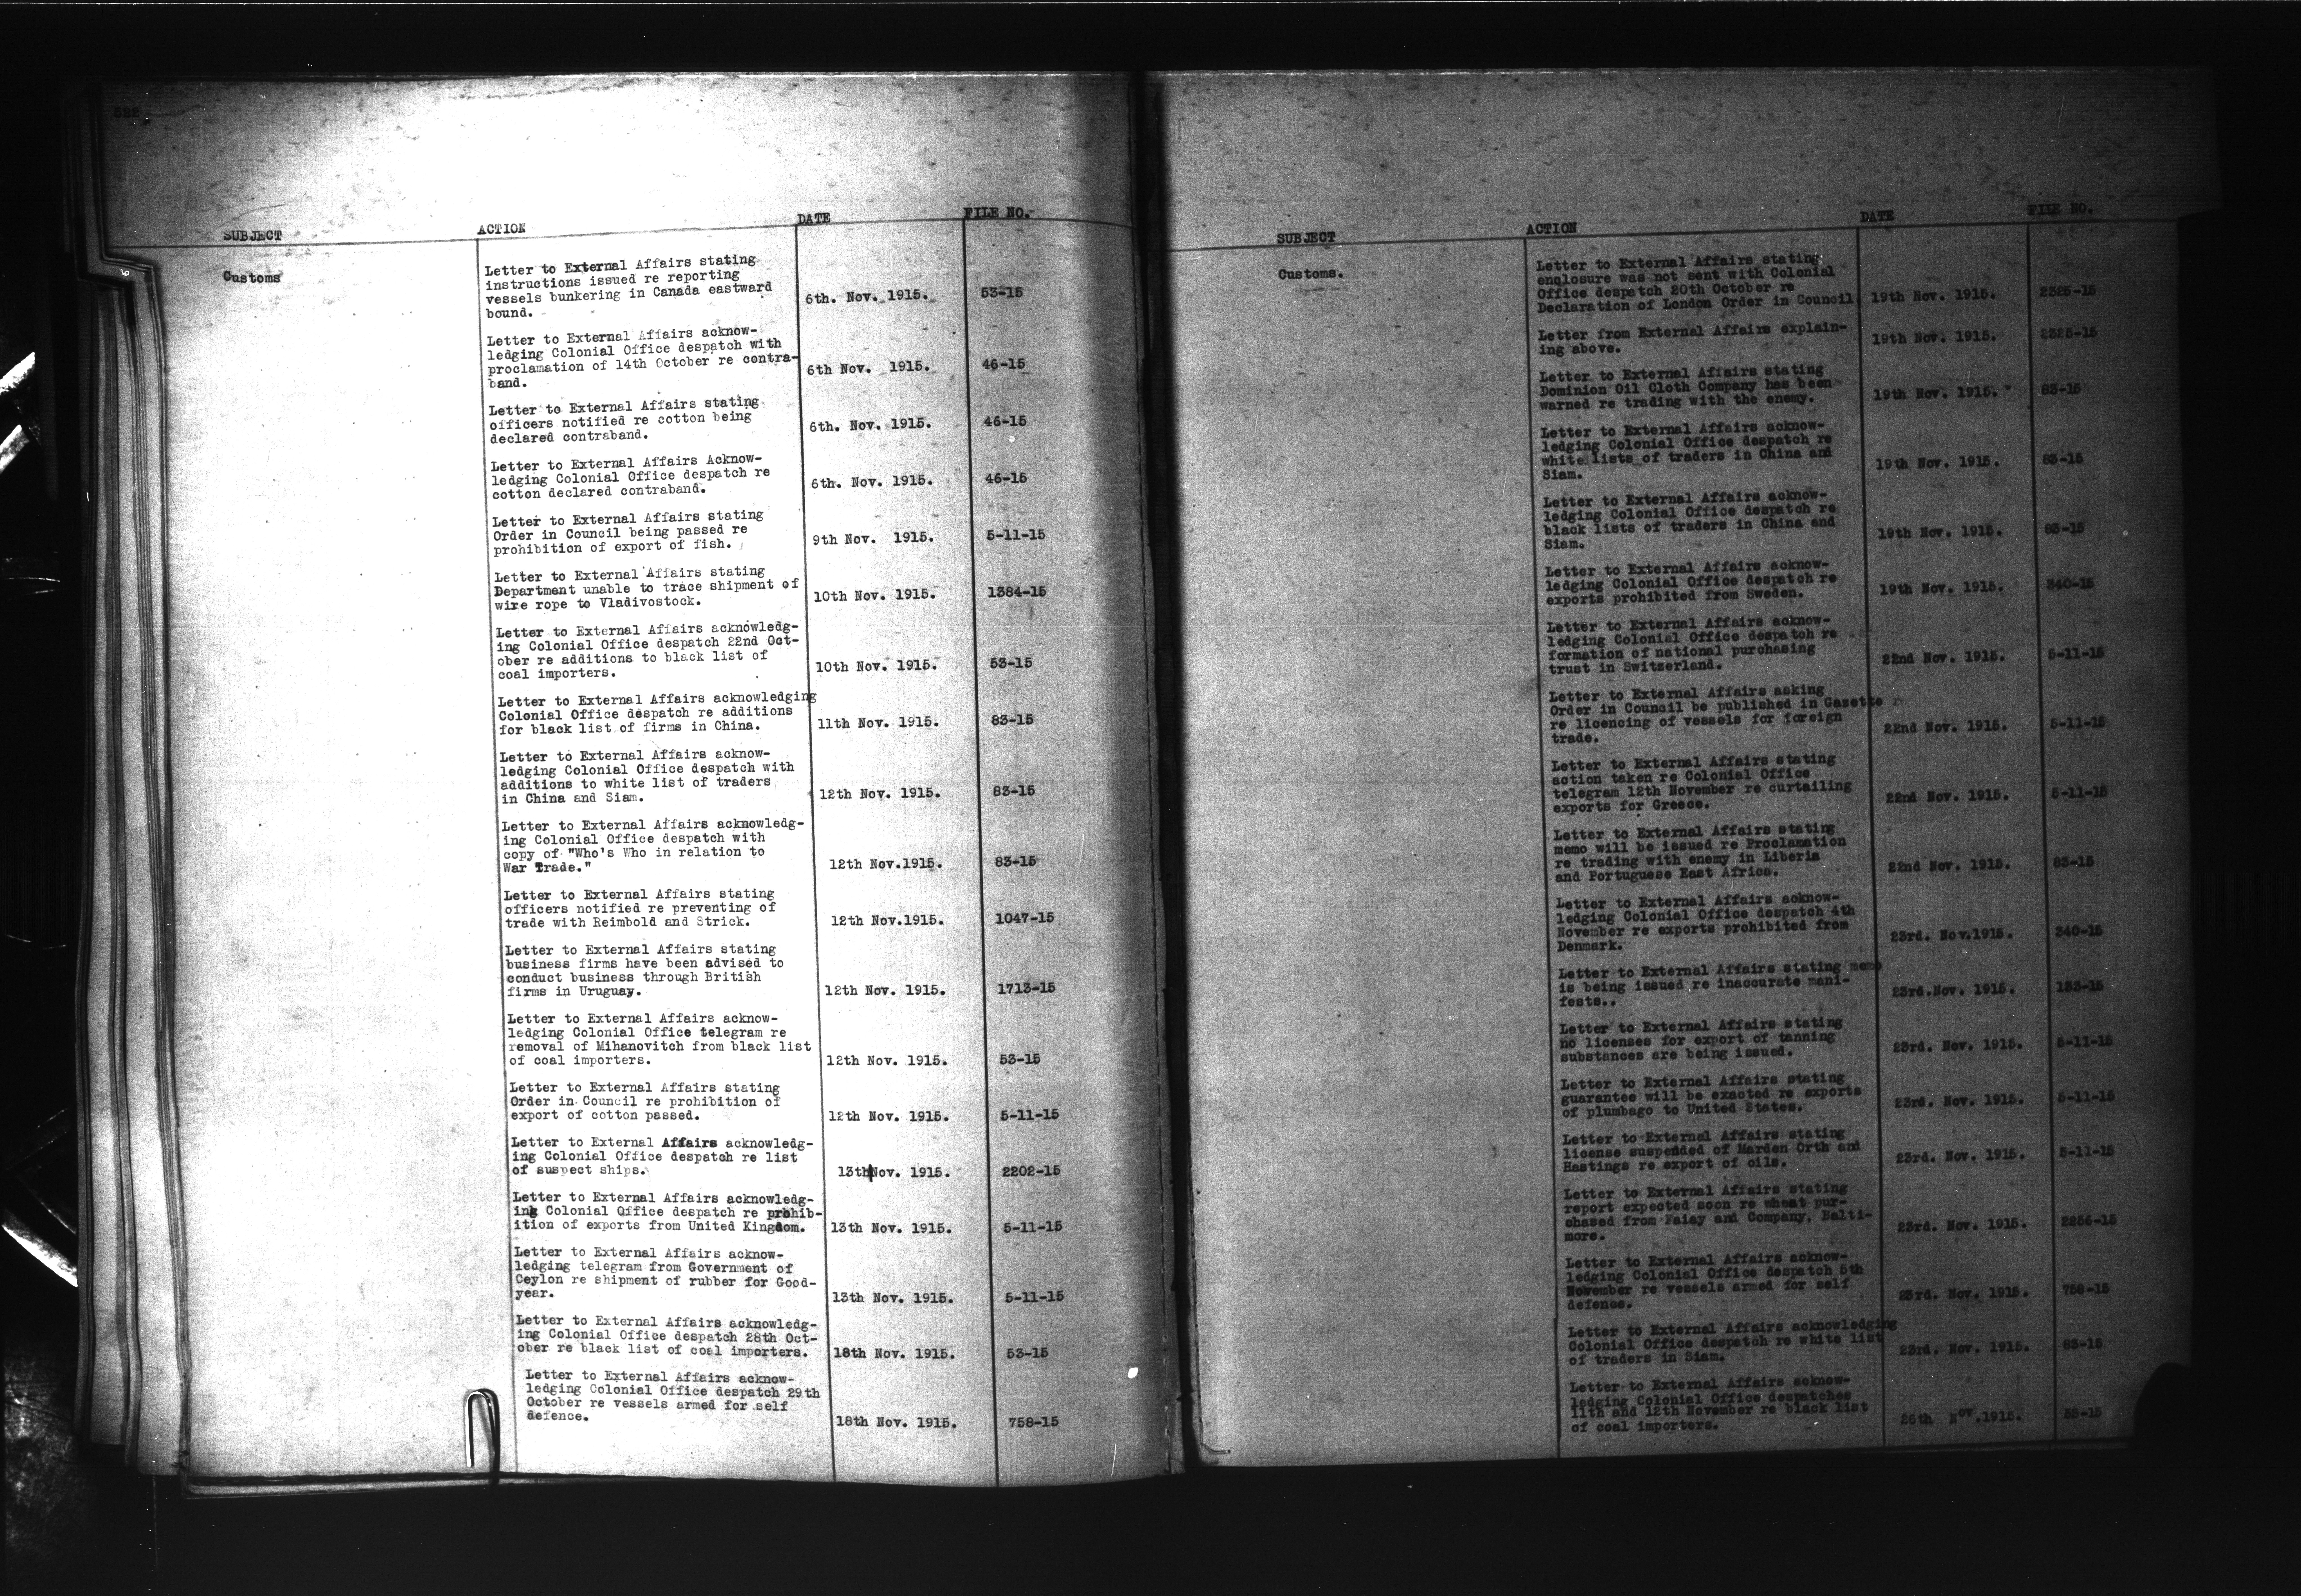 622
SUBJECT ACTION DATE FILE NO.
Customs
Letter to External Affairs stating
instructions issued re reporting
vessels bunkering in Canada eastward
bound. 6th. Nov. 1915. 53-15
Letter to External Affairs acknow-
ledging Colonial Office despatch with
proclamation of 14th October re contra-
band. 6th Nov. 1915. 46-15
Letter to External Affairs stating
officers notified re cotton being
declared contraband. 6th. Nov. 1915. 46-15
Letter to External Affairs Acknow-
ledging Colonial Office despatch re
cotton declared contraband. 6th. Nov. 1915. 46-15
Letter to External Affairs stating
Order in Council being passed re
prohibition of export of fish. 9th Nov. 1915. 5-11-15
Letter to External Affairs stating
Department unable to trace shipment of
wire rope to Vladivostock. 10th Nov. 1915. 1384-15
Letter to External Affairs acknowledg-
ing Colonial Office despatch 22nd Oct-
ober re additions to black list of
coal importers. 10th Nov. 1915. 53-15
Letter to External Affairs acknowledging
Colonial Office despatch re additions
for black list of firms in China. 11th Nov. 1915. 83-15
Letter to External Affairs acknow-
ledging Colonial Office despatch with
additions to white list of traders
in China and Siam. 12th Nov. 1915. 83-15
Letter to External Affairs acknowledg-
ing Colonial Office despatch with
copy of "Who's Who in relation to
War Trade." 12th Nov.1915. 83-15
Letter to External Affairs stating
officers notified re preventing of
trade with Reimbold and Strick. 12th Nov.1915. 1047-15
Letter to External Affairs stating
business firms have been advised to
conduct business through British
firms in Uruguay. 12th Nov. 1915. 1713-15
Letter to External Affairs acknow-
ledging Colonial Office telegram re
removal of Mihanovitch from black list
of coal importers. 12th Nov. 1915. 53-15
Letter to External Affairs stating
Order in Council re prohibition of
export of cotton passed. 12th Nov. 1915. 5-11-15
Letter to External Affairs acknowledg-
ing Colonial Office despatch re list
of suspect ships. 13th Nov. 1915. 2202-15
Letter to External Affairs acknowledg-
ing Colonial Office despatch re prohib-
ition of exports from United Kingdom. 13th Nov. 1915. 5-11-15
Letter to External Affairs acknow-
ledging telegram from Government of
Ceylon re shipment of rubber for Good-
year. 13th Nov. 1915. 5-11-15
Letter to External Affairs acknowledg-
ing Colonial Office despatch 28th Oct-
ober re black list of coal importers. 18th Nov. 1915. 53-15
Letter to External Affairs acknow-
ledging Colonial Office despatch 29th
October re vessels armed for self
defence. 18th Nov. 1915. 758-15
SUBJECT ACTION DATE FILE NO.
Customs.
Letter to External Affairs stating
enclosure was not sent with Colonial
Office despatch 20th October re
Declaration of London Order in Council 19th Nov. 1915. 2325-15
Letter from External Affairs explain-
ing above. 19th Nov. 1915. 2325-15
Letter to External Affairs stating
Dominion Oil Cloth Company has been
warned re trading with the enemy. 19th Nov. 1915. 83-15
Letter to External Affairs acknow-
ledging Colonial Office despatch re
white lists of traders in China and
Siam. 19th Nov. 1915. 83-15
Letter to External Affairs acknow-
ledging Colonial Office despatch re
black lists of traders in China and
Siam. 19th Nov. 1915. 83-15
Letter to External Affairs acknow-
ledging Colonial Office despatch re
exports prohibited from Sweden. 19th Nov. 1915. 340-15
Letter to External Affairs acknow-
ledging Colonial Office despatch re
formation of national purchasing
trust in Switzerland. 22nd Nov. 1915. 5-11-15
Letter to External Affairs asking
Order in Council be published in Gazette
re licencing of vessels for foreign
trade. 22nd Nov. 1915. 5-11-15
Letter to External Affairs stating
action taken re Colonial Office
telegram 12th November re curtailing
exports for Greece. 22nd Nov. 1915. 5-11-15
Letter to External Affairs stating
memo will be issued re Proclamation
re trading with enemy in Liberia
and Portuguese East Africa. 22nd Nov. 1915. 83-15
Letter to External Affairs acknow-
ledging Colonial Office despatch 4th
November re exports prohibited from
Denmark. 23rd. Nov.1915. 340-15
Letter to External Affairs stating memo
is being issued re inaccurate mani-
fests.. 23rd.Nov. 1915. 133-15
Letter to External Affairs stating
no licenses for export of tanning
substances are being issued. 23rd. Nov. 1915. 5-11-15
Letter to External Affairs stating
guarantee will be exacted re exports
of plumbago to United States. 23rd. Nov. 1915. 5-11-15
Letter to External Affairs stating
license suspended of Marden Orth and
Hastings re export of oils. 23rd. Nov. 1915. 5-11-15
Letter to External Affairs stating
report expected soon re wheat pur-
chased from and Company, Balti-
more. 23rd. Nov. 1915. 2256-15
Letter to External Affairs acknow-
ledging Colonial Office despatch 5th
November re vessels armed for self
defence. 23rd. Nov. 1915. 758-15
Letter to External Affairs acknowledging
Colonial Office despatch re white list
of traders in Siam. 23rd. Nov. 1915. 83-15
Letter to External Affairs acknow-
ledging Colonial Office despatches
11th and 12th November re black list
of coal importers. 26th Nov.1915. 53-15